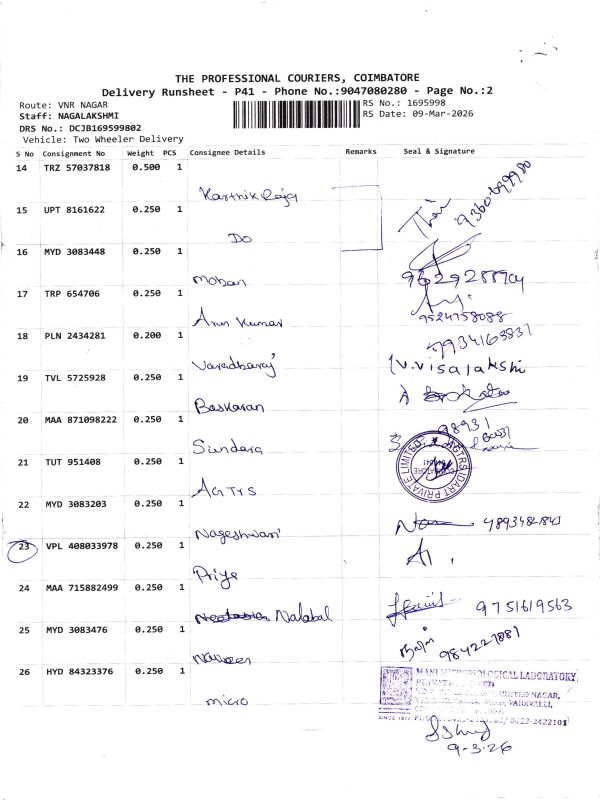 THE PROFESSIONAL COURIERS, COIMBATORE
Delivery Runsheet - P41 - Phone No.:9047080280 - Page No.:2
Route: VNR NAGAR
RS No.: 1695998
Staff: NAGALAKSHMI
RS Date: 09-Mar-2026
DRS No.: DCJB169599802
Vehicle: Two Wheeler Delivery
S No Consignment No Weight PCS Consignee Details Remarks Seal & Signature
14 TRZ 57037818 0.500 1
Karthik Raja
15 UPT 8161622 0.250 1
Do
16 MYD 3083448 0.250 1
Mohan
17 TRP 654706 0.250 1
Arun Kumar
9524758088
18 PLN 2434281 0.200 1
7934163831
Varadharaj
V.Visalakshi
19 TVL 5725928 0.250 1
Baskaran
20 MAA 871098222 0.250 1
98931
Sundara
21 TUT 951408 0.250 1
AGTRS
22 MYD 3083203 0.250 1
Nageshwari
23 VPL 408033978 0.250 1
Priya
24 MAA 715882499 0.250 1
Nalabal
9751619563
25 MYD 3083476 0.250 1
Naveen
26 HYD 84323376 0.250 1
MICROBIOLOGICAL LABORATORY
UNITED NAGAR,
VADAVALLI,
SINCE 1977
0422-2422101
micro
9-3-26